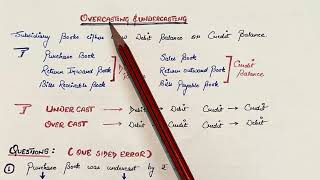 OVERCASTING & UNDERCASTING
Subsidiary Books either Debit Balance or Credit Balance
I Purchase Book Sales Book
Return Inward Book Return outward Book Credit Balance
Bills Receivable Book Bills Payable Book
UNDER CAST → Debit → Debit Credit → Credit
OVER CAST → Debit → Credit Credit → Debit
QUESTIONS : ( ONE SIDED ERROR )
1 Purchase Book was undercast by ₹